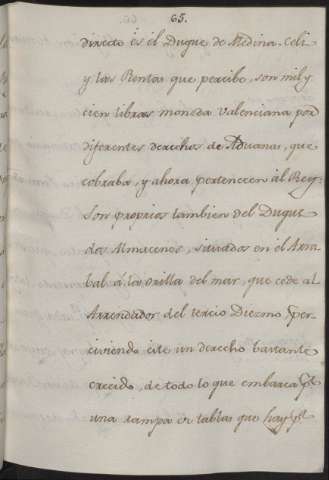 65.
directo es el Duque de Medina-Celi
y las Rentas que percibe, son mil y
cien libras moneda Valenciana por
diferentes derechos de Aduanas, que
cobraba, y ahora pertenecen al Rey.
Son proprios tambien del Duque
dos Almacenes, situados en el Arra
bal á la orilla del mar, que cede al
Arrendador del tercio Diezmo, per-
civiendo este un derecho bastante
crecido, de todo lo que embarca
una rampa de tablas que hay